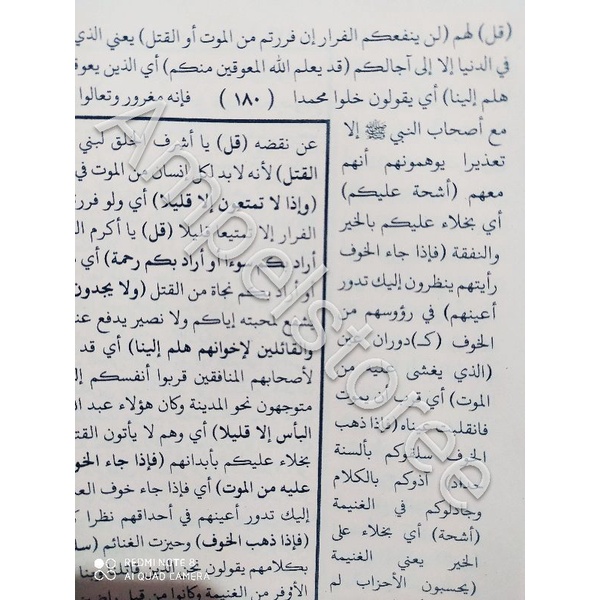 (قل) لهم (لن ينفعكم الفرار إن فررتم من الموت أو القتل) يعني الذي
في الدنيا إلا إلى آجالكم (قد يعلم الله المعوقين منكم) أي الذين يعوقو
هلم إلينا) أي يقولون خلوا محمدا ( ١٨٠ ) فإنه مغرور وتعالوا
مع أصحاب النبي ﷺ إلا
تعذيرا يوهمونهم أنهم
معهم (أشحة عليكم)
أي بخلاء عليكم بالخير
والنفقة (فإذا جاء الخوف
رأيتهم ينظرون إليك تدور
أعينهم) في رؤوسهم من
الخوف (كـ)دوران عين
(الذي يغشى عليه من
الموت) أي قرب أن يموت
فانقلبت عيناه (فإذا ذهب
الخوف سلقوكم بألسنة
حداد) آذوكم بالكلام
وجادلوكم في الغنيمة
(أشحة) أي بخلاء على
الخير يعني الغنيمة
(يحسبون الأحزاب لم
عن نقضه (قل) يا أشرف الخلق لبني
القتل) لأنه لابد لكل إنسان من الموت في
(وإذا لا تمتعون إلا قليلا) أي ولو فررتم
الفرار إلا تمتيعا قليلا (قل) يا أكرم
أراد بكم سوءا أو أراد بكم رحمة) أي
أو أراد بكم نجاة من القتل (ولا يجدون
يشفع لمحبته إياكم ولا نصير يدفع عنـ
والقائلين لإخوانهم هلم إلينا) أي قد
لأصحابهم المنافقين قربوا أنفسكم إ
متوجهون نحو المدينة وكان هؤلاء عبد الـ
البأس إلا قليلا) أي وهم لا يأتون القتـ
بخلاء عليكم بأبدانهم (فإذا جاء الخو
عليه من الموت) أي فإذا جاء خوف العد
إليك تدور أعينهم في أحداقهم نظرا كـ
(فإذا ذهب الخوف) وحيزت الغنائم (سلـ
بكلامهم يقولون نحن الذين قاتلنا
الأوفر من الغنيمة وكانوا من قبل
Ampelstoree
REDMI NOTE 8
AI QUAD CAMERA